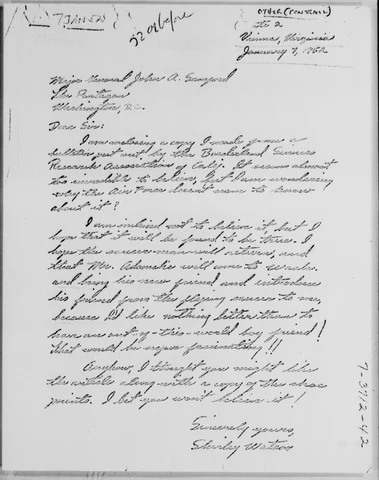 OTHER (CONTRAIL)
7 JAN 53
Rt 2
Vienna, Virginia
January 7, 1953
Major General John A. Samford
The Pentagon
Washington, D.C.
Dear Sir:
I am enclosing a copy I made from a
bulletin put out by the Borderland Sciences
Research Association of Calif. It seems almost
too incredible to believe, but I am wondering
why the Air Force doesn't seem to know
about it?
I am inclined not to believe it, but I
hope that it will be found to be true. I
hope the saucer-man will return, and
that Mr. Adamski will come to Wash.
and bring his new friend and introduce
his friend from the flying saucer to me,
because I'd like nothing better than to
have an out-of-this-world boy friend!
That would be super fascinating!!
Anyhow, I thought you might like
the article along with a copy of the shoe
prints. I bet you won't believe it!
Sincerely yours,
Shirley Watson
7-3712-42